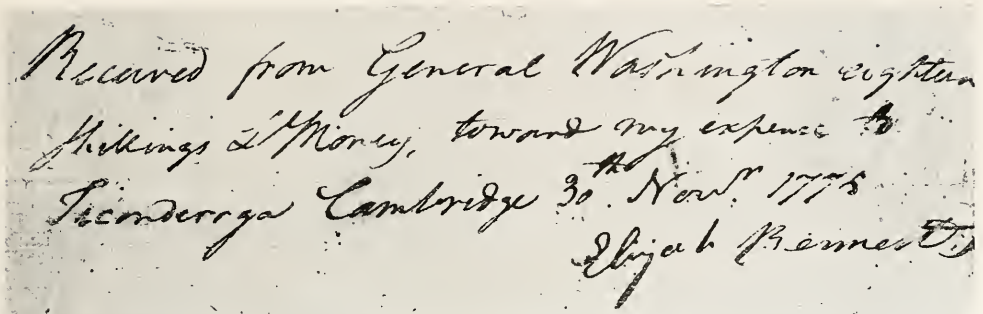 Received from General Washington eighteen
Shillings L Money, toward my expence to
Ticonderoga Cambridge 30th. Novr. 1775
Elijah Bennet